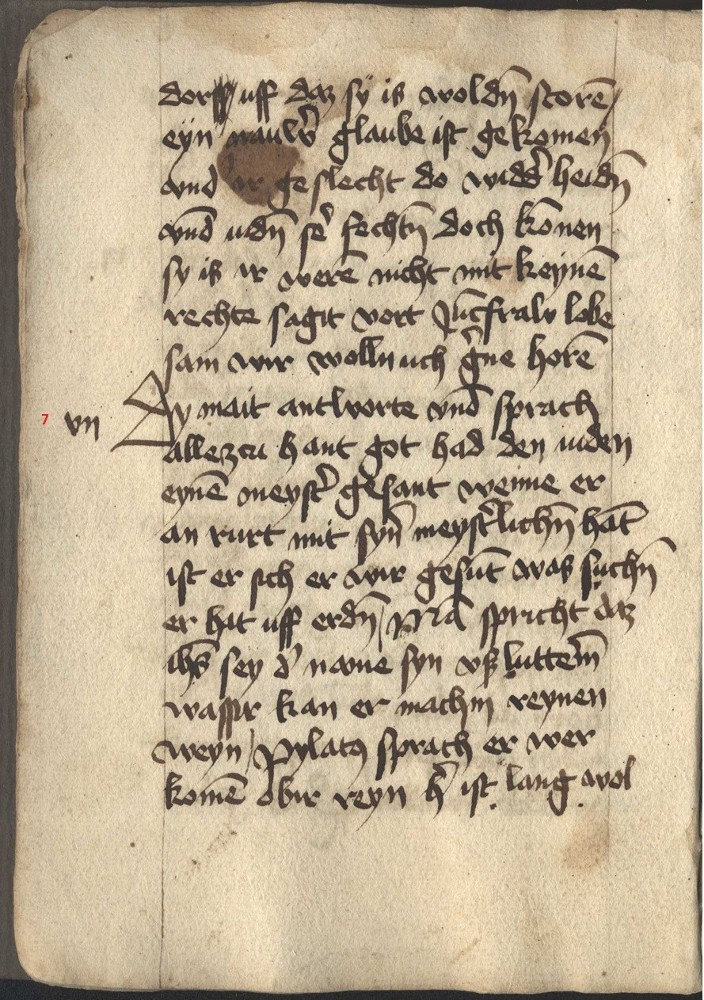 dorff uff daz sÿ is woldn̄ storē /
eÿn nauwꝰ glaube ist gekomen
vnd ir geslecht do widdꝰ heidn̄
vnd iudn̄ sēꝰ fechtn̄ doch kōnen
sy is ir werē nicht mit keynē
rechte sagit vort Jūcfraw lobe
sam wir wolln uch gꝰne horē
7 vii Dy mait antworte vnd sprach
allezcu hant got had den iuden
eynē meystꝰ gesant wenne er
an rurt mit syn̄ meystꝰlichn̄ hāt
ist er sich er wir gesūt was suchn̄
er hat uff erdn̄ / Mā spricht daz
ihs̄ sey dꝰ name syn vß luttem̄
wassir kan er machin reynen
weyn / Pylatꝰ sprach er wer
komē obir reyn hꝰ ist lang wol